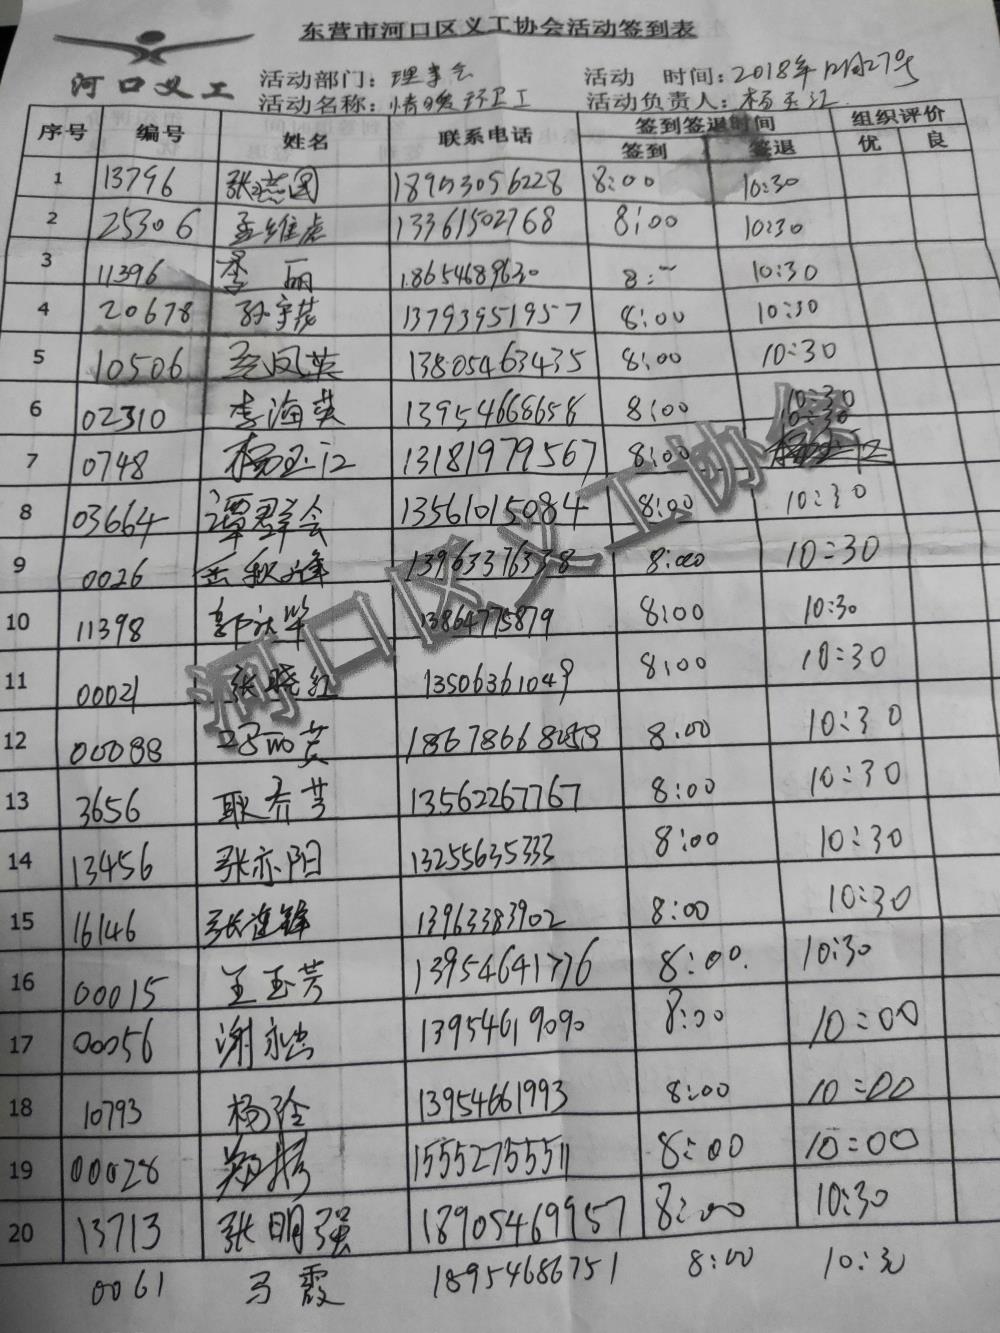 东营市河口区义工协会活动签到表
河口义工
活动部门：理事会 活动 时间：2018年12月27号
活动名称：情暖环卫工 活动负责人：杨玉江
序号 编号 姓名 联系电话 签到签退时间 组织评价
签到 签退 优 良
1 13796 18:00 10:30
2 25306 孟维虎 13361502768 8:00 10:30
3 11396 李丽 18654689630 8: 10:30
4 20678 13793951957 8:00 10:30
5 10506 凤英 13805463435 8:00 10:30
6 02310 李海英 13954668658 8:00 10:30 10:30
7 0748 杨玉江 13181979567 8:00
8 03664 谭群会 13561015084 8:00 10:30
9 0026 岳秋峰 13963376338 8:00 10:30
10 11398 13864775879 8:00 10:30
11 00021 张晓红 13506361049 8:00 10:30
12 00088 8:00 10:30
13 3656 耿乔芳 13562267767 8:00 10:30
14 13456 张亦阳 13255635333 8:00 10:30
15 16146 张连锋 13963383902 8:00 10:30
16 00015 王玉芳 13954641776 8:00. 10:30
17 00056 谢永杰 13954619090 8:00 10:00
18 10793 杨玲 13954661993 8:00 10:00
19 00028 15552755511 8:00 10:00
20 13713 张明强 18905469957 8:00 10:30
0061 马霞 18954686751 8:00 10:30
河口区义工协会